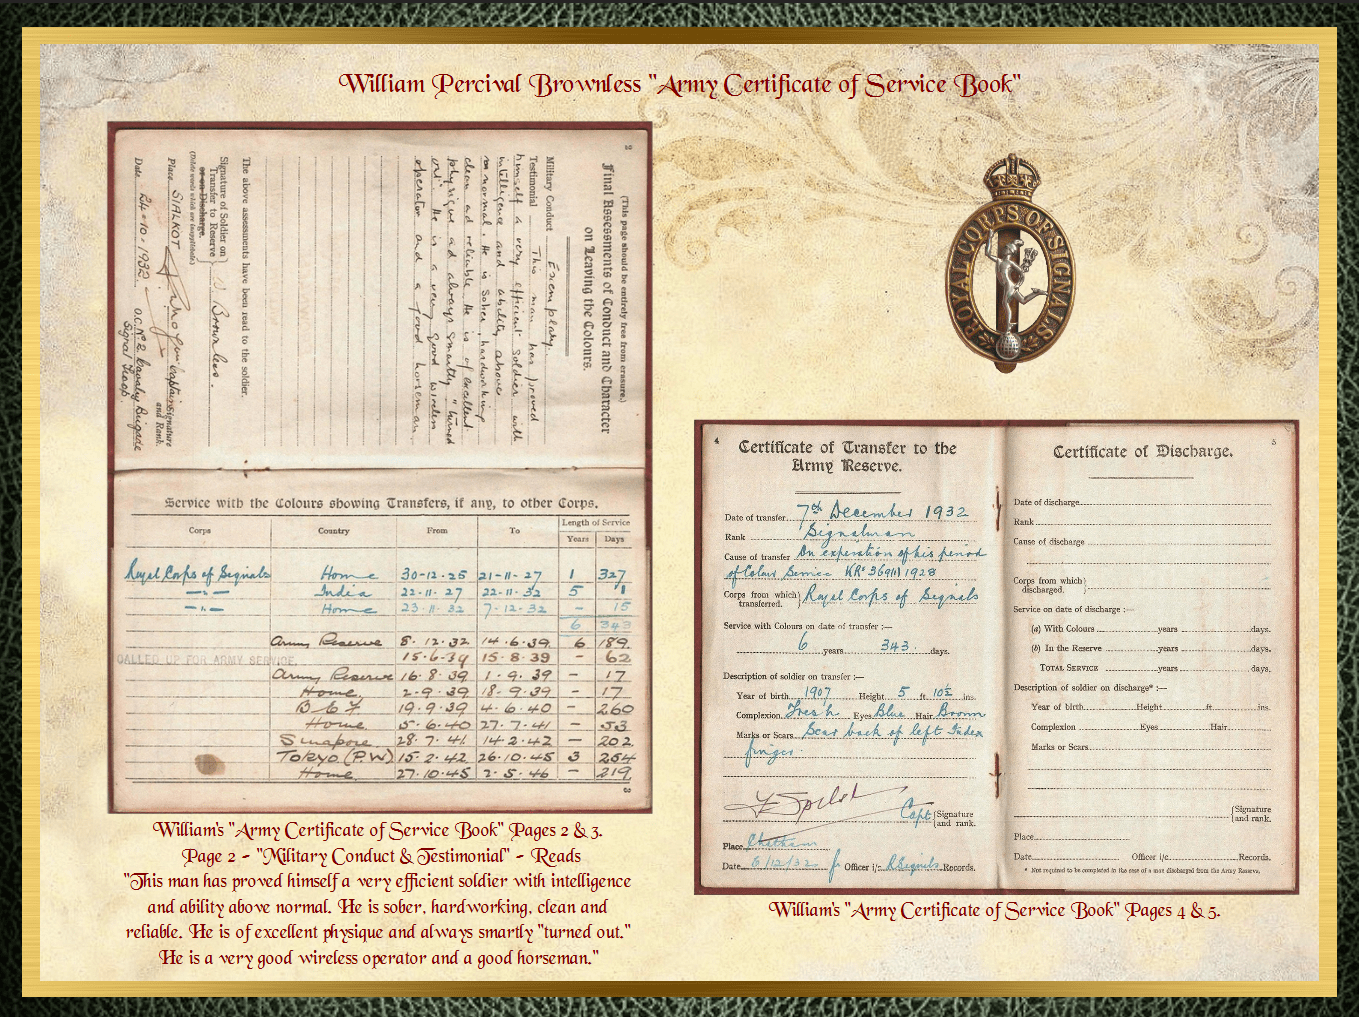 William Percival Brownless "Army Certificate of Service Book"
2
(This page should be entirely free from erasure.)
Final Assessments of Conduct and Character
on Leaving the Colours.
Military Conduct Exemplary.
Testimonial This man has proved
himself a very efficient soldier with
intelligence and ability above
normal. He is sober, hardworking
clean and reliable. He is of excellent
physique and always smartly "turned
out". He is a very good wireless
operator and a good horseman.
The above assessments have been read to the soldier.
Signature of Soldier on
Transfer to Reserve
or on Discharge.
W Brownless.
(Delete words which are inapplicable)
Place SIALKOT
Captain Signature
and Rank.
Date 24-10-1932
O.C. No 2 Cavalry Brigade
Signal Troop
Service with the Colours showing Transfers, if any, to other Corps.
Corps Country From To Length of Service
Years Days
Royal Corps of Signals Home 30-12-25 21-11-27 1 327
—"— India 22-11-27 22-11-32 5 1
—"— Home 23.11.32 7-12-32 - 15
6 343
Army Reserve 8.12.32 14.6.39 6 189
CALLED UP FOR ARMY SERVICE. 15-6-39 15-8-39 - 62
Army Reserve 16.8.39 1.9.39 - 17
Home 2-9-39 18-9-39 - 17
B E F 19.9.39 4.6.40 - 260
Home 5.6.40 27.7.41 - 53
Singapore 28.7.41 14.2.42 - 202
Tokyo (P.W) 15.2.42 26.10.45 3 254
Home 27.10.45 2.5.46 - 219
3
William's "Army Certificate of Service Book" Pages 2 & 3.
Page 2 - "Military Conduct & Testimonial" - Reads
"This man has proved himself a very efficient soldier with intelligence
and ability above normal. He is sober, hardworking, clean and
reliable. He is of excellent physique and always smartly "turned out."
He is a very good wireless operator and a good horseman."
ROYAL CORPS OF SIGNALS
4
Certificate of Transfer to the
Army Reserve.
Date of transfer 7th December 1932
Rank Signalman
Cause of transfer On expiration of his period
of Colour Service KRs 369(1) 1928
Corps from which transferred. Royal Corps of Signals
Service with Colours on date of transfer :—
6 years 343 days.
Description of soldier on transfer :—
Year of birth 1907 Height 5 ft. 10½ ins.
Complexion Fresh Eyes Blue Hair Brown
Marks or Scars Scar back of left Index
finger.
Capt {Signature
and rank.
Place Chatham
Date 6/12/32 for Officer i/c R Signals Records.
5
Certificate of Discharge.
Date of discharge
Rank
Cause of discharge
Corps from which
discharged.
Service on date of discharge :—
(a) With Colours years days.
(b) In the Reserve years days.
TOTAL SERVICE years days.
Description of soldier on discharge* :—
Year of birth Height ft. ins.
Complexion Eyes Hair
Marks or Scars
{Signature
and rank.
Place
Date Officer i/c. Records.
* Not required to be completed in the case of a man discharged from the Army Reserve.
William's "Army Certificate of Service Book" Pages 4 & 5.